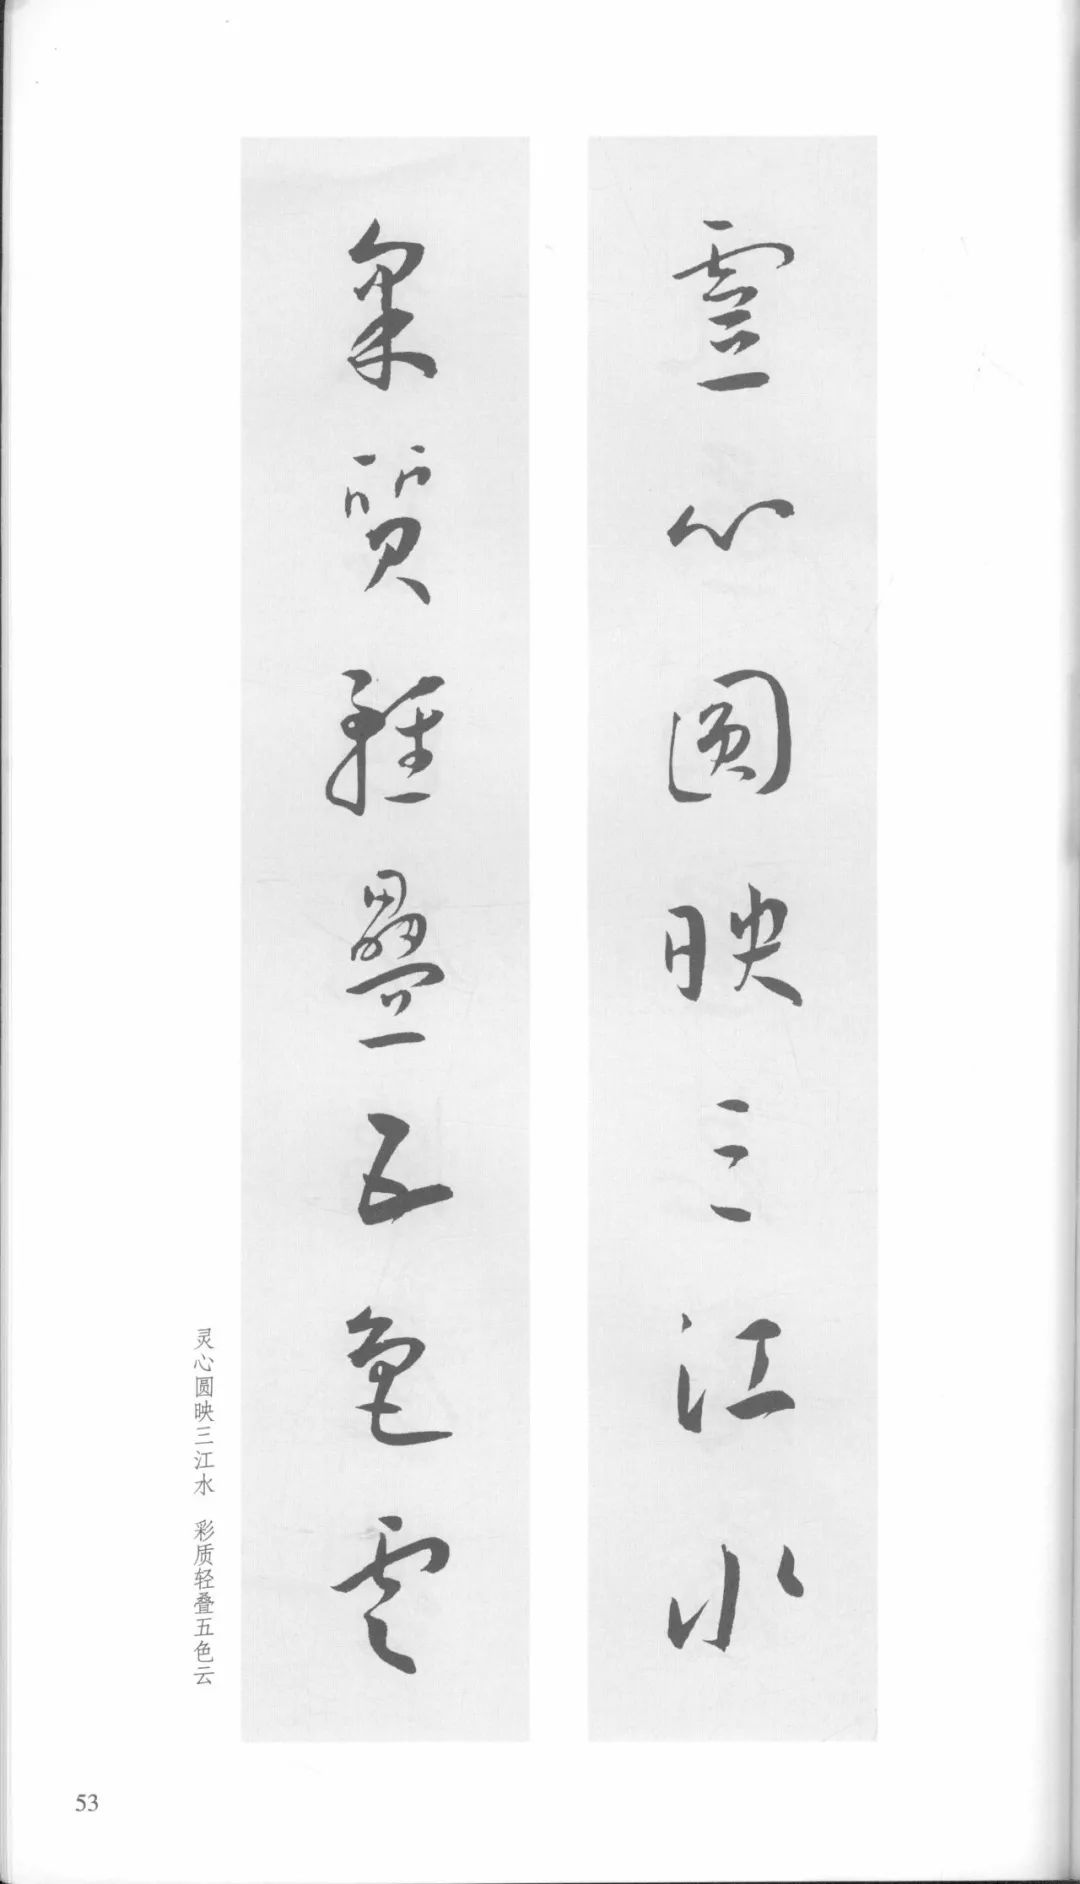 靈心圓映三江水
采質輕疊五色雲
灵心圆映三江水 彩质轻叠五色云
53